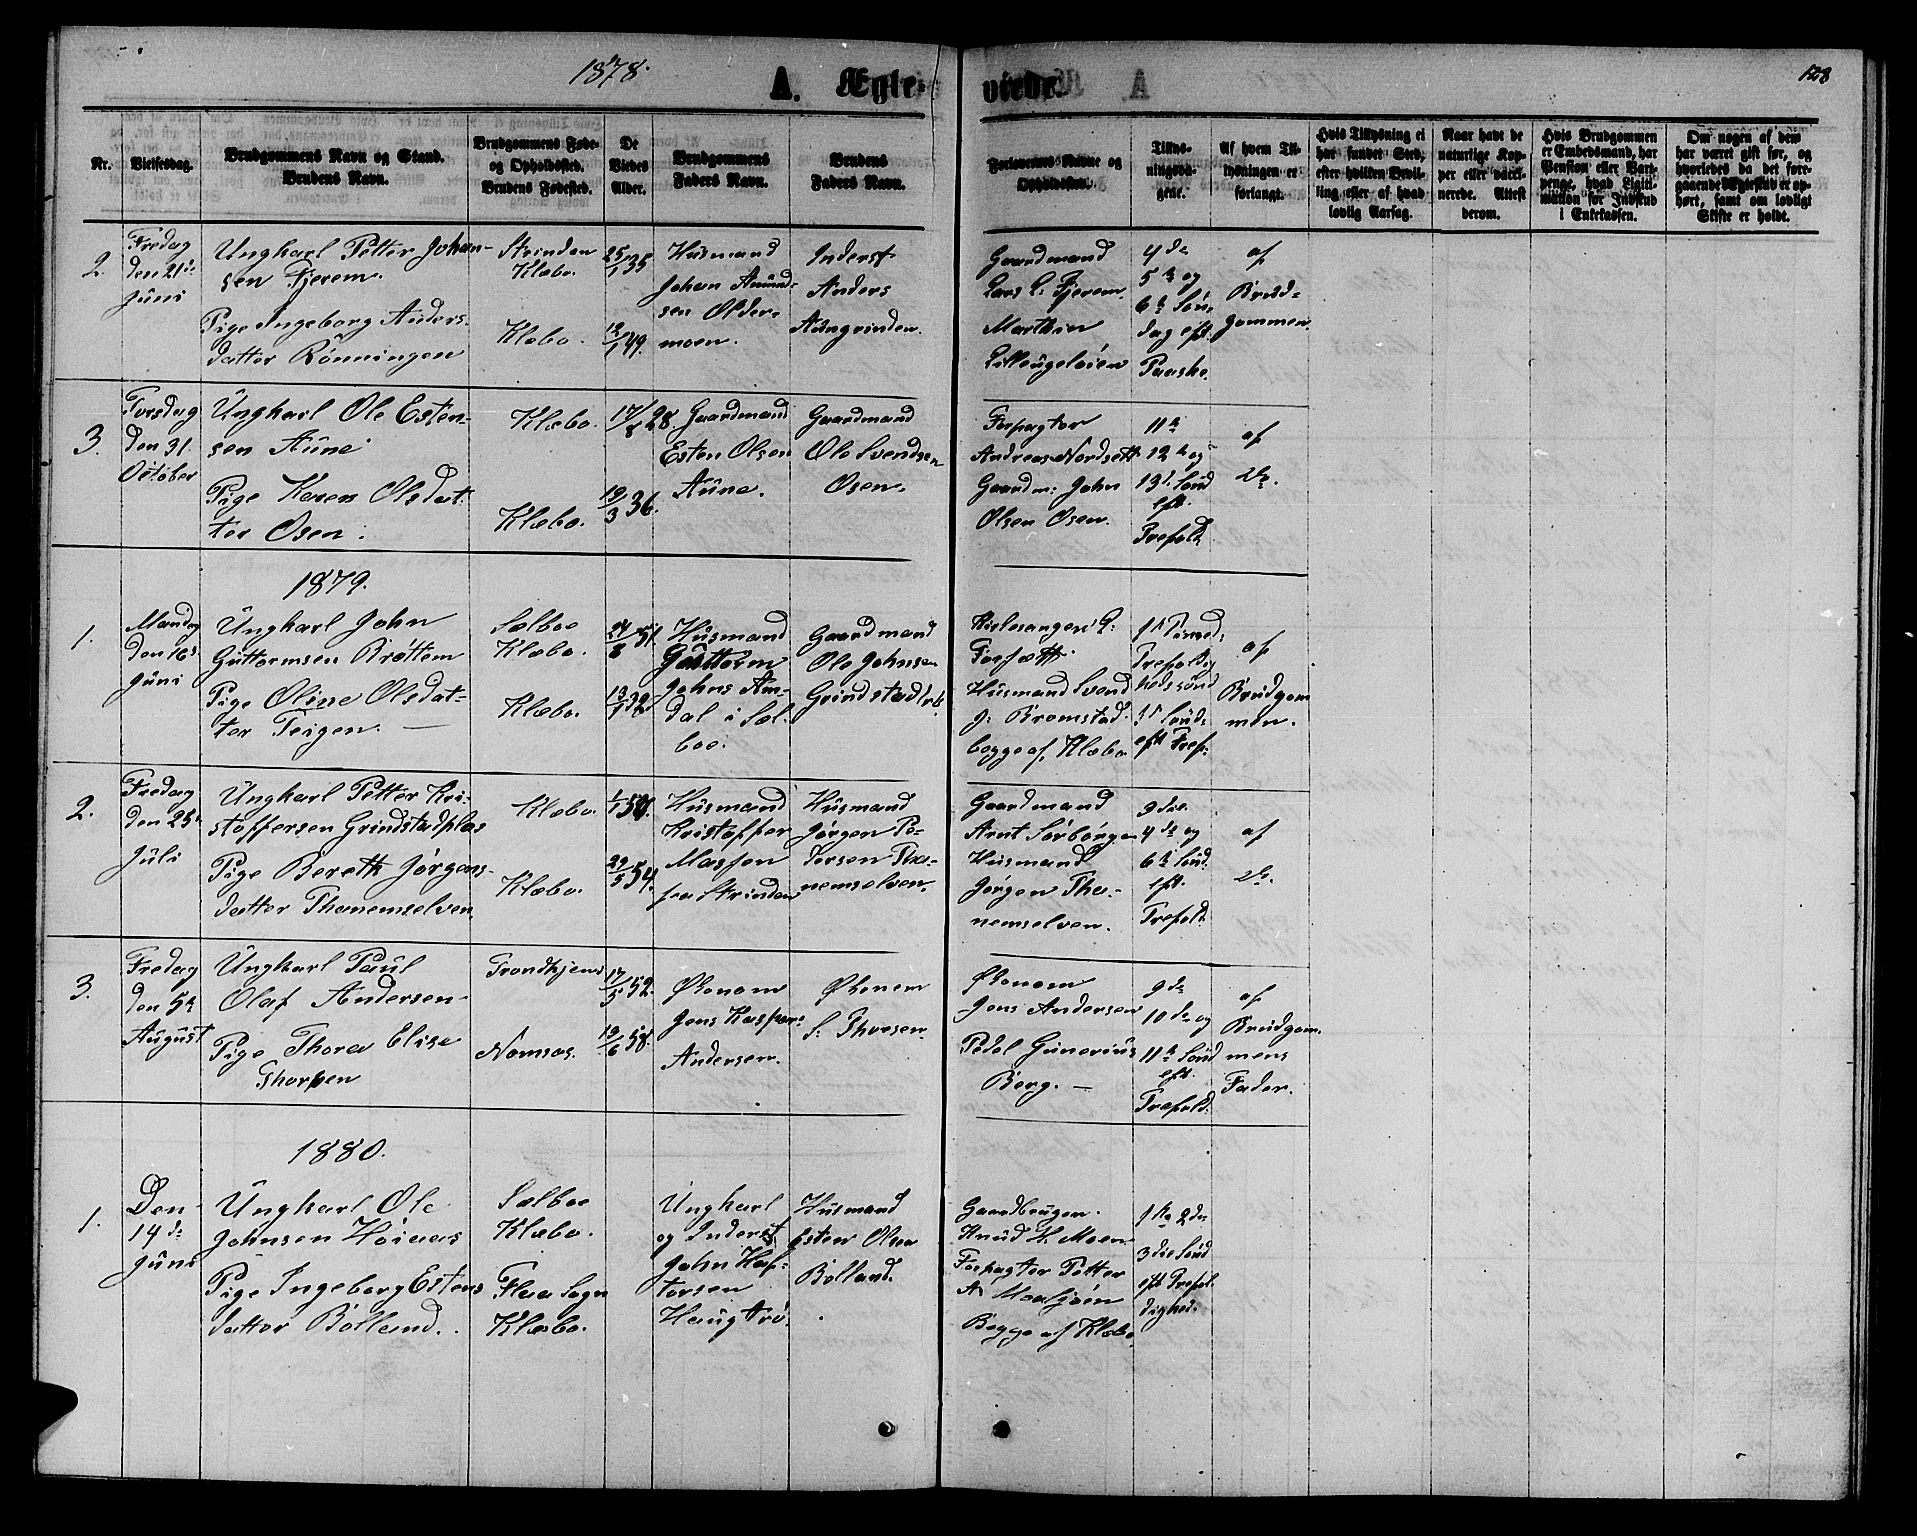 1878.
A. Ægte-
viede.
128
Nr.
Vielsesdag.
Brudgommens Navn og Stand.
Brudens Navn.
Brudgommens Føde-
og Opholdssted.
Brudens Fødested.
De
Viedes
Alder.
Brudgommens
Faders Navn.
Brudens
Faders Navn.
Forlovernes Navne og
Opholdssted.
Tillys-
ningsda-
gene.
Af hvem Til-
lysningen er
forlangt.
Hvis Tillysning ei
har fundet Sted,
efter hvilken Bevil-
ling eller af hvad
lovlig Aarsag.
Naar havt de
naturlige Kop-
per eller vacci-
nerede. Attest
derom.
Hvis Brudgommen
er Embedsmand, har
Pension eller Vart-
penge, hvad Ligiti-
mation for Indskud
i Enkekassen.
Om nogen af dem
har været gift før, og
hvorledes da det fore-
gaaende Ægteskab er op-
hørt, samt om lovligt
Skifte er holdt.
2.
Fredag
den 21de
Juni
Ungkarl Petter Johan-
sen Fjerem.
Pige Ingeborg Anders-
datter Rönningen
Strinden
Klæbo.
Klæbo.
25/1 35
13/1 49.
Husmand
Johan Amund-
sen Older-
moen.
Inderst
Anders
Aungrinden.
Gaardmand
Lars L. Fjerem.
Marthin
Lilleugelöien
4de
5te og
6te Sön-
dag eft.
Paaske.
af
Brud-
gommen.
3.
Torsdag
den 31.
October
Ungkarl Ole Esten-
sen Aune
Pige Karen Olsdat-
ter Osen.
Klæbo.
Klæbo.
17/8 28.
19/3 36.
Gaardmand
Esten Olsen
Aune.
Gaardmand
Ole Svendsen
Osen.
Forpagter
Andreas Nordsett
Gaardm: John
Olsen Osen.
11te
12te og
13d. Sönd
eft.
Trefold.
af
do.
1879.
1.
Mandag
den 16d.
Juni
Ungkarl John
Guttormsen Bröttem
Pige Oline Olsdat-
ter Teigen. —
Selboe
Klæbo.
Klæbo.
24/8 51.
13/1 32.
Husmand
Guttorm
Johns Am-
dal i Sel-
boe.
Gaardmand
Ole Johnsen
Grindstad
Kirkesanger L:
Forsætt.
Husmand Svend
J. Bromstad.
begge af Klæbo
Trefoldig
hedssönd
Sönd.
eft Tref.
af
Brudgom
men.
2.
Fredag
den 25d.
Juli
Ungkarl Petter Kri-
stoffersen Grindstadplas
Pige Bereth Jörgens-
datter Thanemselven.
Klæbo.
Klæbo.
29/5 54.
Husmand
Kristoffer
Massen
fra Strinden
Husmand
Jörgen Pe-
dersen Tha-
nemselven.
Gaardmand
Arnt Sörborgen
Husmand
Jörgen Tha-
nemselven.
3die.
4de og
6te Sönd.
eft.
Trefold.
af
do.
3.
Fredag
den 5te
August
Ungkarl Paul
Olaf Andersen
Pige Thora Elise
Thorsen
Trondhjem
Namsos.
17/5 52.
19/6 58.
Økonom
Jens Kasper
Andersen.
Økonom
S: Thorsen.
Økonom
Jens Andersen
Pedel Gunerius
Berg. —
9de
10de og
11te Sönd
eft.
Trefold.
af
Brudgom-
mens
Fader.
1880.
1.
Den
14de
Juni
Ungkarl Ole
Johnsen Höiaas
Pige Ingeborg Estens
datter Bolland.
Selboe
Klæbo.
Flaa Sogn
Klæbo.
Ungkarl
og Inderst
John Haf-
torsen
Haugtrö.
Husmand
Esten Olsen
Bolland.
Gaardbruger.
Knud H. Moen
Forpagter Petter
A. Maaljöen
Begge af Klæbo
1ste 2den
3die Sönd
eft Trefol-
dighed.